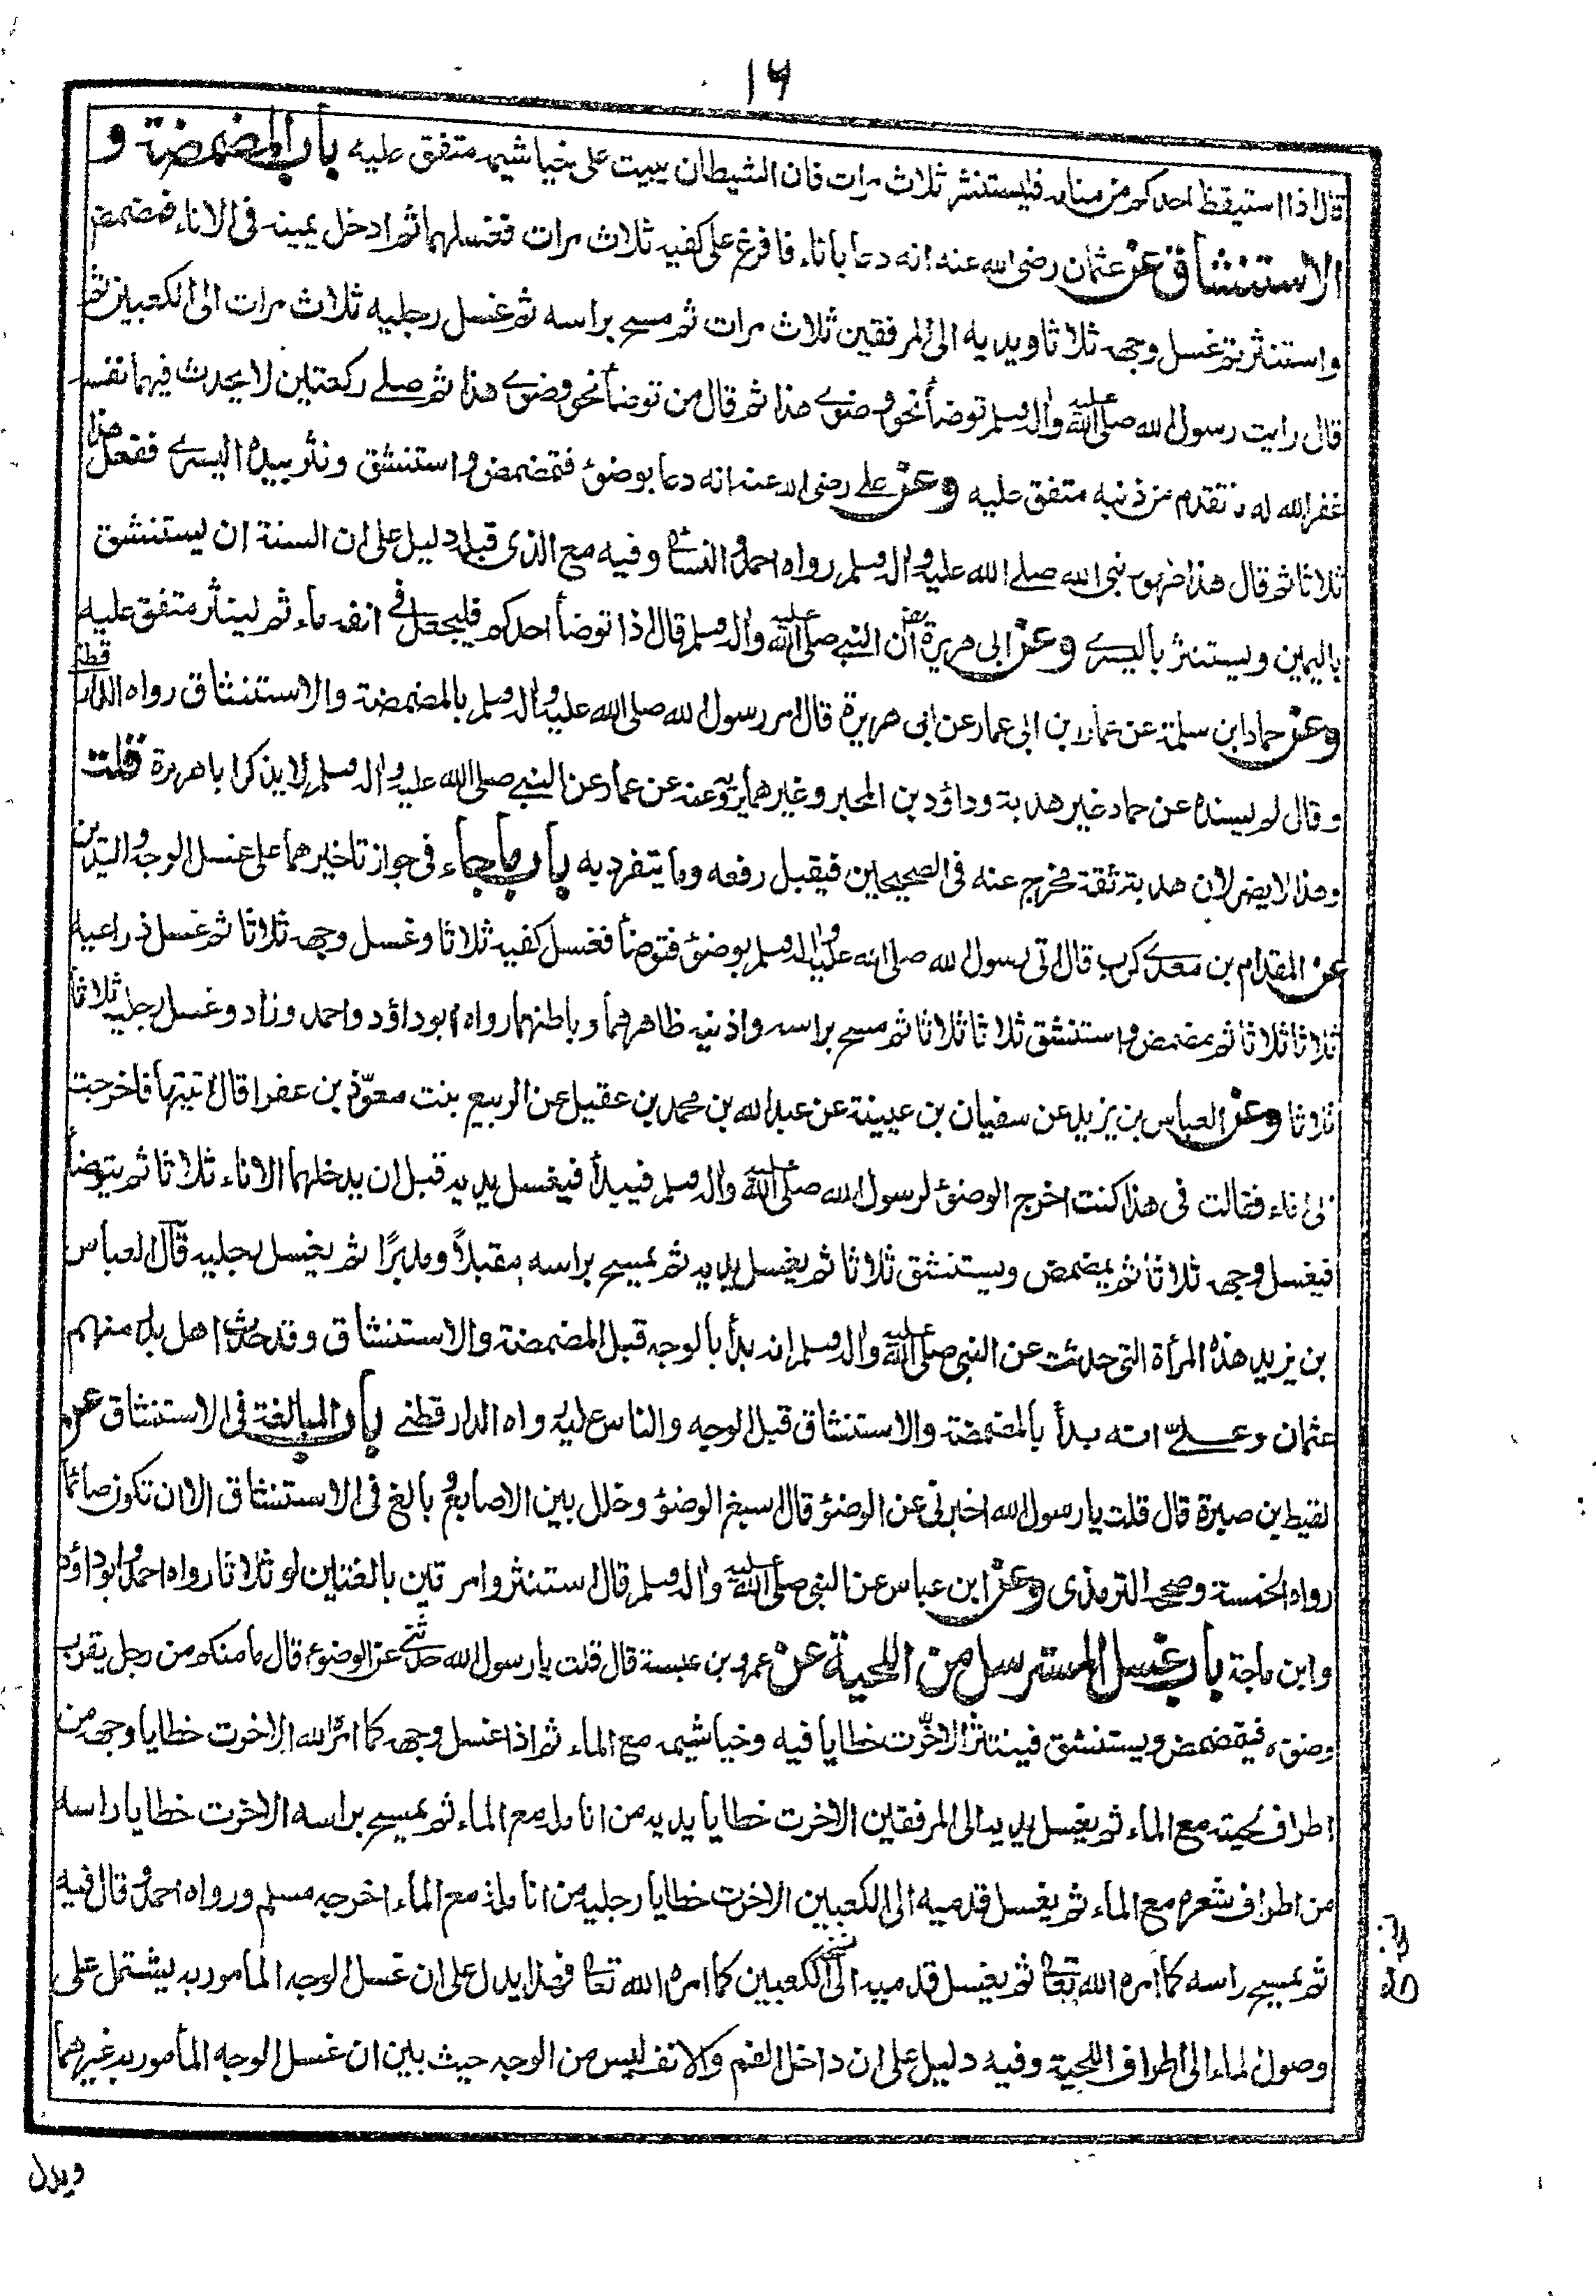 ١٦
قال اذا استيقظ احدكم من منامه فليستنثر ثلاث مرات فان الشيطان يبيت على خياشيمه متفق عليه باب المضمضة و
الاستنشاق عن عثمان رضي الله عنه انه دعا باناء فافرغ على كفيه ثلاث مرات فغسلهما ثم ادخل يمينه في الاناء فمضمض
واستنثر ثم غسل وجهه ثلاثا ويديه الى المرفقين ثلاث مرات ثم مسح براسه ثم غسل رجليه ثلاث مرات الى الكعبين ثم
قال رايت رسول الله صلى الله عليه واله وسلم توضأ نحو وضوئى هذا ثم قال من توضأ نحو وضوئى هذا ثم صلے ركعتين لا يحدث فيهما نفسه
غفر الله له ما تقدم من ذنبه متفق عليه وعن علي رضي الله عنه انه دعا بوضوء فتمضمض واستنشق ونثر بيده اليسرى ففعل هذا
ثلاثا ثم قال هذا طهور نبى الله صلے الله عليه واله وسلم رواه احمد والنسائى وفيه مع الذى قبله دليل على ان السنة ان يستنشق
باليمين ويستنثر باليسرى وعن ابى هريرة ان النبي صلى الله عليه واله وسلم قال اذا توضأ احدكم فليجعل فى انفه ماء ثم لينثر متفق عليه
وعن حماد ابن سلمة عن عمار بن ابى عمار عن ابى هريرة قال امر رسول الله صلى الله عليه واله وسلم بالمضمضة والاستنشاق رواه الدارقطنے
وقال لم يسنده عن حماد غير هدبة وداؤد بن المحبر وغيرهما يرويه عنه عن عمار عن النبي صلى الله عليه واله وسلم لا يذكر ابا هريرة قلت
وهذا لا يضر لان هدبة ثقة مخرج عنه فى الصحيحين فيقبل رفعه وما يتفرد به باب ما جاء فى جواز تاخيرهما على غسل الوجه واليدين
عن المقدام بن معدى كرب قال اتى رسول الله صلى الله عليه واله وسلم بوضوء فتوضأ فغسل كفيه ثلاثا وغسل وجهه ثلاثا ثم غسل ذراعيه
ثلاثا ثلاثا ثم مضمض واستنشق ثلاثا ثلاثا ثم مسح براسه واذنيه ظاهرهما وباطنهما رواه ابو داؤد واحمد وزاد وغسل رجليه ثلاثا
ثلاثا وعن العباس بن يزيد عن سفيان بن عيينة عن عبد الله بن محمد بن عقيل عن الربيع بنت معوّذ بن عفرا قال اتيتها فاخرجت
الى اناء فقالت فى هذا كنت اخرج الوضوء لرسول الله صلى الله عليه واله وسلم فيبدأ فيغسل يديه قبل ان يدخلهما الاناء ثلاثا ثم يتوضأ
فيغسل وجهه ثلاثا ثم يمضمض ويستنشق ثلاثا ثم يغسل يديه ثم يمسح براسه مقبلاً ومدبرًا ثم يغسل رجليه قال العباس
بن يزيد هذه المرأة التى حدثت عن النبى صلى الله عليه واله وسلم انه بدأ بالوجه قبل المضمضة والاستنشاق وقد حدث اهل بدر منهم
عثمان وعليّ انه بدأ بالمضمضة والاستنشاق قبل الوجه والناس عليه رواه الدارقطنے باب المبالغة فى الاستنشاق عن
لقيط بن صبرة قال قلت يا رسول الله اخبرنى عن الوضوء قال اسبغ الوضوء وخلل بين الاصابع وبالغ فى الاستنشاق الا ان تكون صائما
رواه الخمسة وصححه الترمذى وعن ابن عباس عن النبى صلى الله عليه واله وسلم قال استنثروا مرتين بالغتين او ثلاثا رواه احمد وابو داؤد
وابن ماجة باب غسل المسترسل من اللحية عن عمرو بن عبسة قال قلت يا رسول الله حدثنى عن الوضوء قال ما منكم من رجل يقرب
وضوءه فيتمضمض ويستنشق فينتثر الا خرّت خطايا فيه وخياشيمه مع الماء ثم اذا غسل وجهه كما امره الله الا خرت خطايا وجهه من
اطراف لحيته مع الماء ثم يغسل يديه الى المرفقين الا خرت خطايا يديه من انامله مع الماء ثم يمسح براسه الا خرت خطايا راسه
من اطراف شعره مع الماء ثم يغسل قدميه الى الكعبين الا خرت خطايا رجليه من انامله مع الماء اخرجه مسلم ورواه احمد وقال فيه
ثم يمسح راسه كما امره الله تعالى ثم يغسل قدميه الى الكعبين كما امره الله تعالى فهذا يدل على ان غسل الوجه المأمور به يشتمل على
وصول الماء الى اطراف اللحية وفيه دليل على ان داخل الفم والانف ليس من الوجه حيث بين ان غسل الوجه المأمور به غيرهما
ويدل